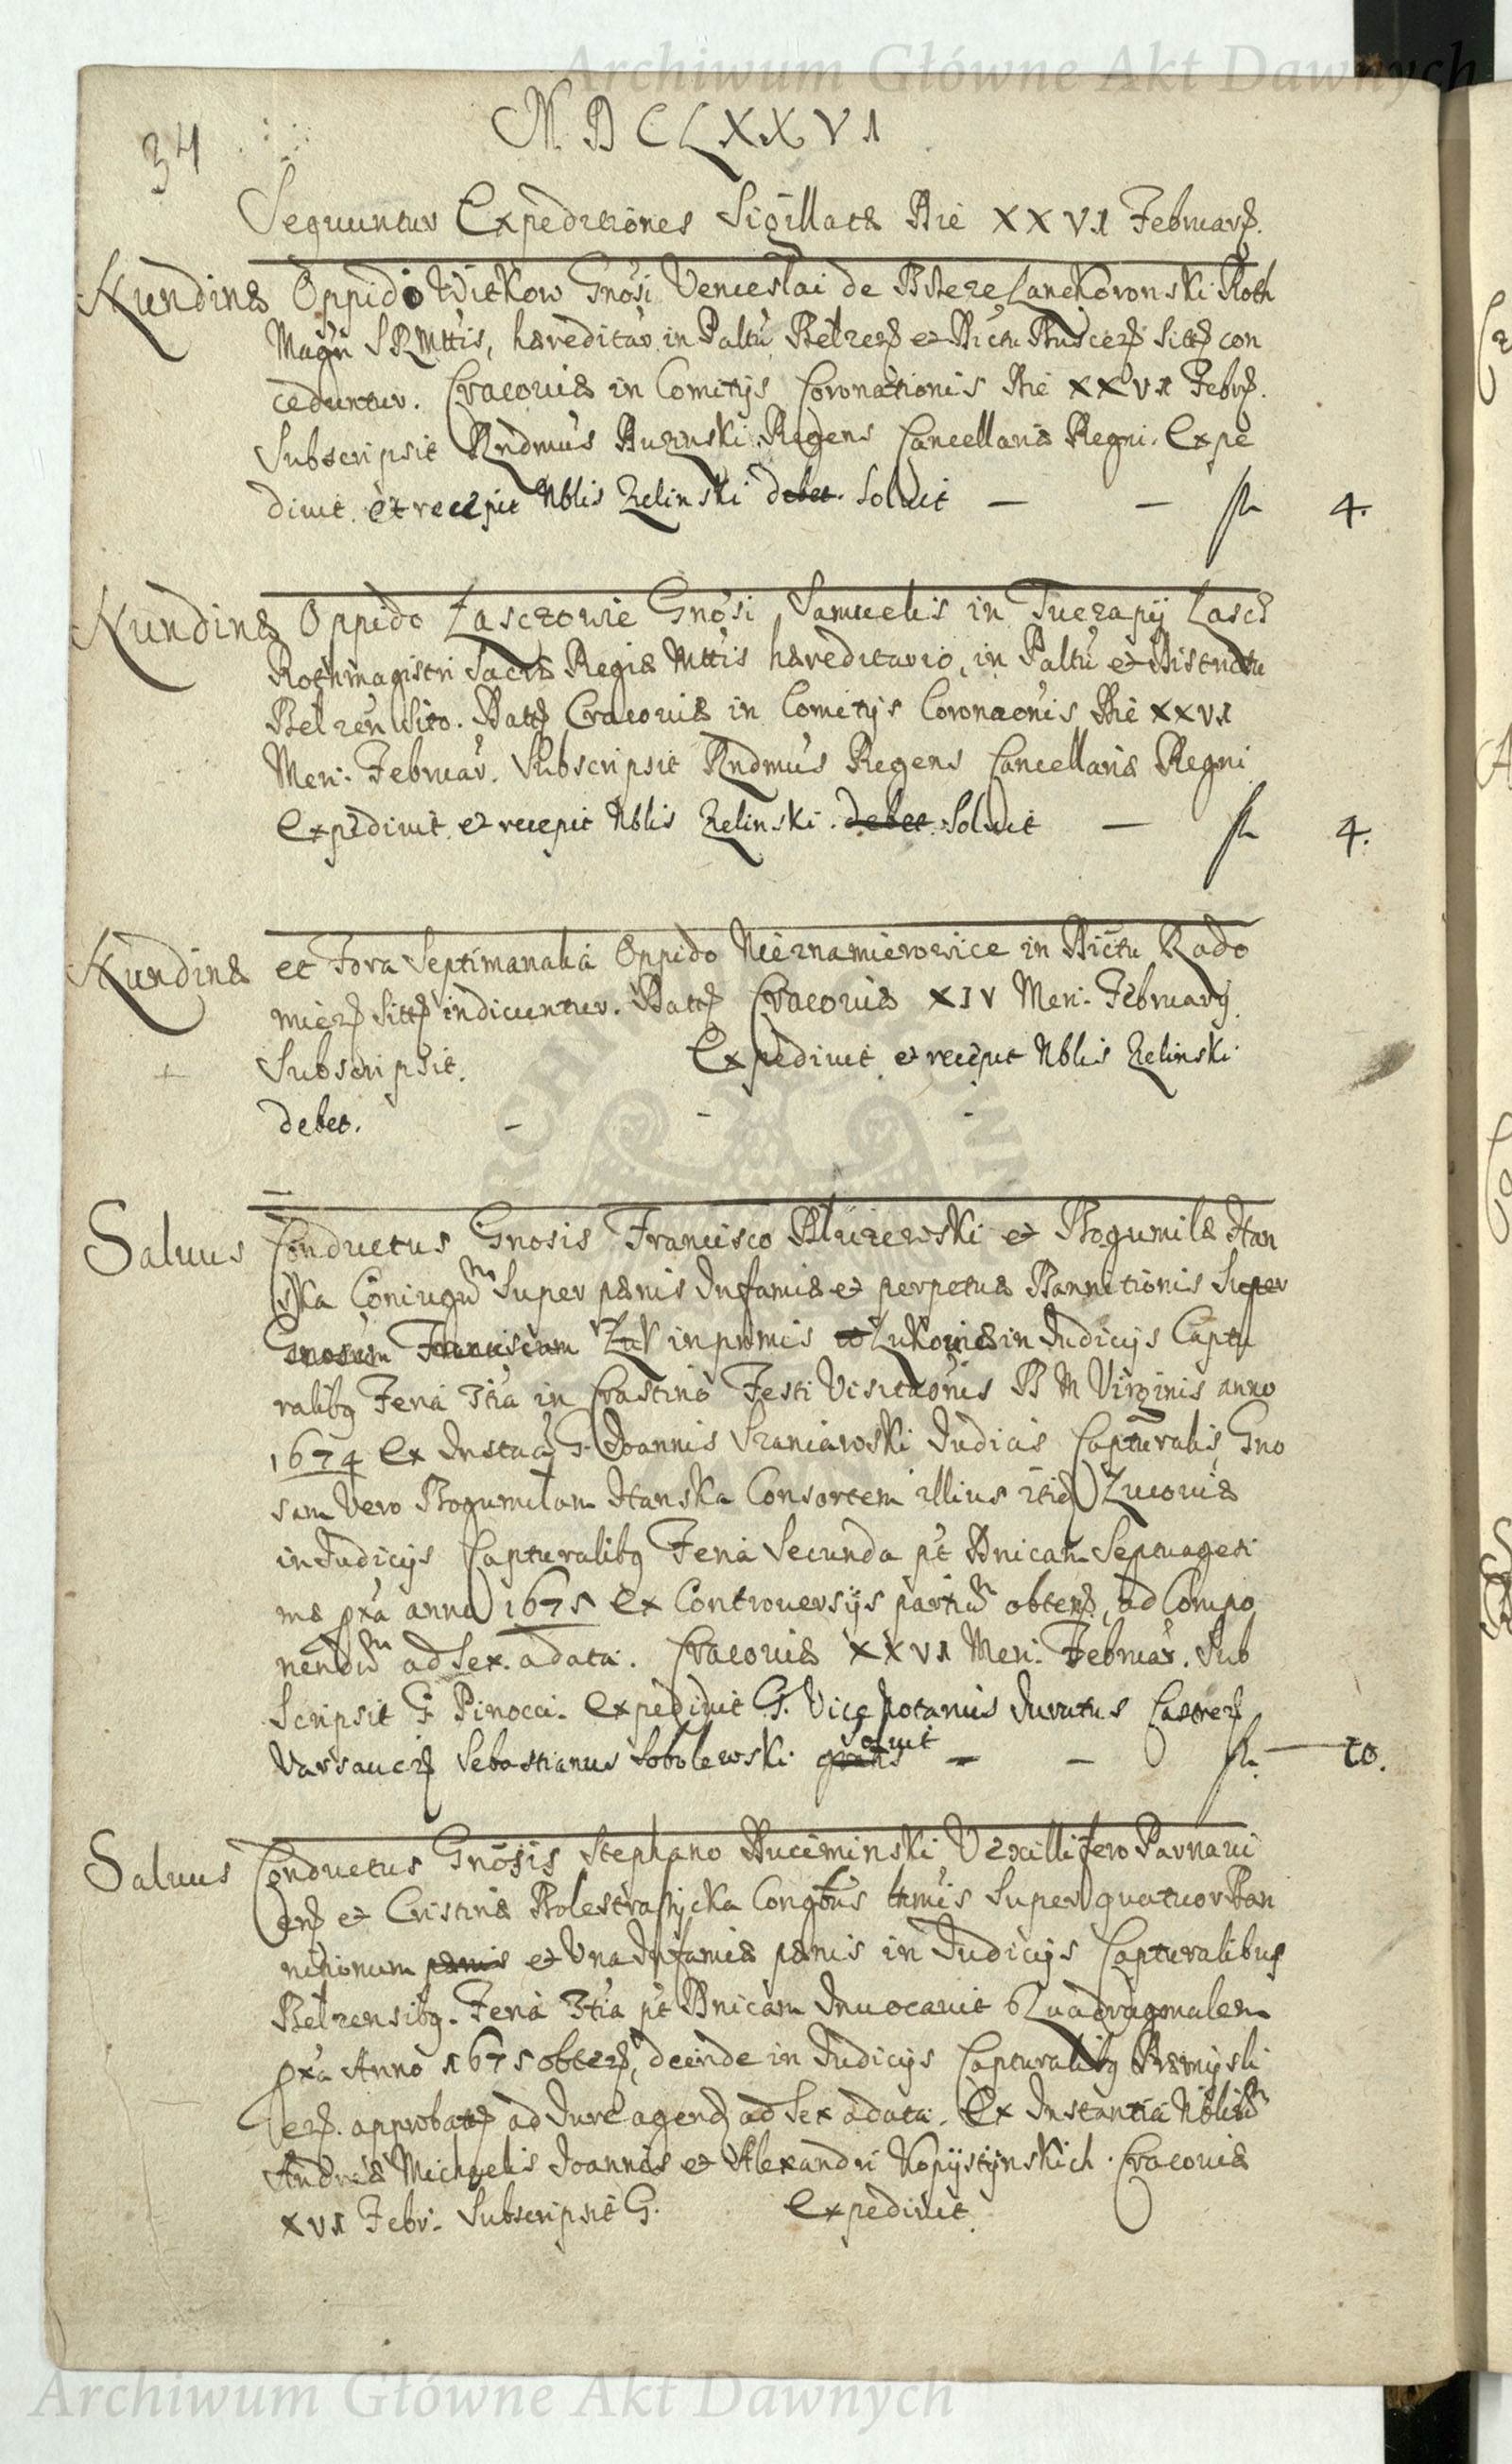 Archiwum Główne Akt Dawnych
34
MDCLXXVI
Sequuntur Expeditiones Sigillatæ Die XXVI Februarÿ.
Nundinæ Oppido Witkow Gnosi Venceslai de Brzezie Lanckoronski Roth
Magri SRMttis, hæreditar. in Paltu Belzeń et Dictu Busceń sitẽ con
ceduntur. Cracoviæ in Comitijs Coronationis Die XXVI Febrꝫ.
Subscripsit Rndmus Buzenski Regens Cancellariæ Regni. Expe
divit et recepit Nblis Zelinski debet. Solvit — — fl 4.
Nundinæ Oppido Lasczowie Gnosi Samuelis in Tuczapÿ Lascz
Rothmagistri Sacræ Regiæ Mttis hæreditario, in Paltu et Districtu
Belzen sito. Datt Cracoviæ in Comitijs Coronaonis Die XXVI
Men: Februar. Subscripsit Rndmus Regens Cancellariæ Regni
Expedivit et recepit Nblis Zelinski. debet Solvit — fl 4.
Nundinæ et Fora Septimanalia Oppido Nieznamierowice in Dictu Rado
mień sitt indicuntur. Datt Cracoviæ XIV Men: Februarÿ.
Subscripsit. Expedivit et recepit Nblis Zelinski.
debet. - - -
Salvus Conductus Gnosis Francisco Bluzewski et Bogumilæ Han
ska Coniugum Super pænis Infamiæ et perpetuæ Bannitionis Super
Gnosum Franciscum Zuk inprimis Zukoviæ in Judicijs Captu
ralibꝫ Feria 3tia in Crastino Festi Visitaonis B M Virginis anno
1674 Ex Instaã G. Joannis Szaniawski Judicis Capturalis, Gno
sam Vero Bogumilam Hanska Consortem illius itid Zucoviæ
in Judicijs Capturalibꝫ Feria Secunda pt Dnicam Septuagesi
mæ pxa anno 1675 Ex Controversijs partium obtenꝫ, ad Compo
nendum ad Sex. adata. Cracoviæ XXVI Men: Februar. Sub
Scripsit G Pinocci. Expedivit G. Vice Notarius Juratus Castreń
Varsavień Sebastianus Sobolewski gratis Solvit - - fl. — 10.
Salvus Conductus Gnosis Stephano Buceminski Vexillifero Parnavi
enꝫ et Cristinæ Bolestraszÿcka Congbus Super quatuor Ban
nitionum pænis et Una Infamiæ pænis in Judicijs Capturalibus
Belzensibꝫ. Feria 3tia pt Dnicam Invocavit Quadragmalem
pxa Anno 1675 obtenꝫ, deinde in Judicijs Capturalibꝫ Præmÿsli
enꝫ. approbatꝫ ad Jure agend ad Sex adata. Ex Instantia Nblium
Andreæ Michaelis Joannis et Alexandri Kopÿstÿnskich. Cracoviæ
XVI Febr. Subscripsit G. Expedivit
Archiwum Główne Akt Dawnych